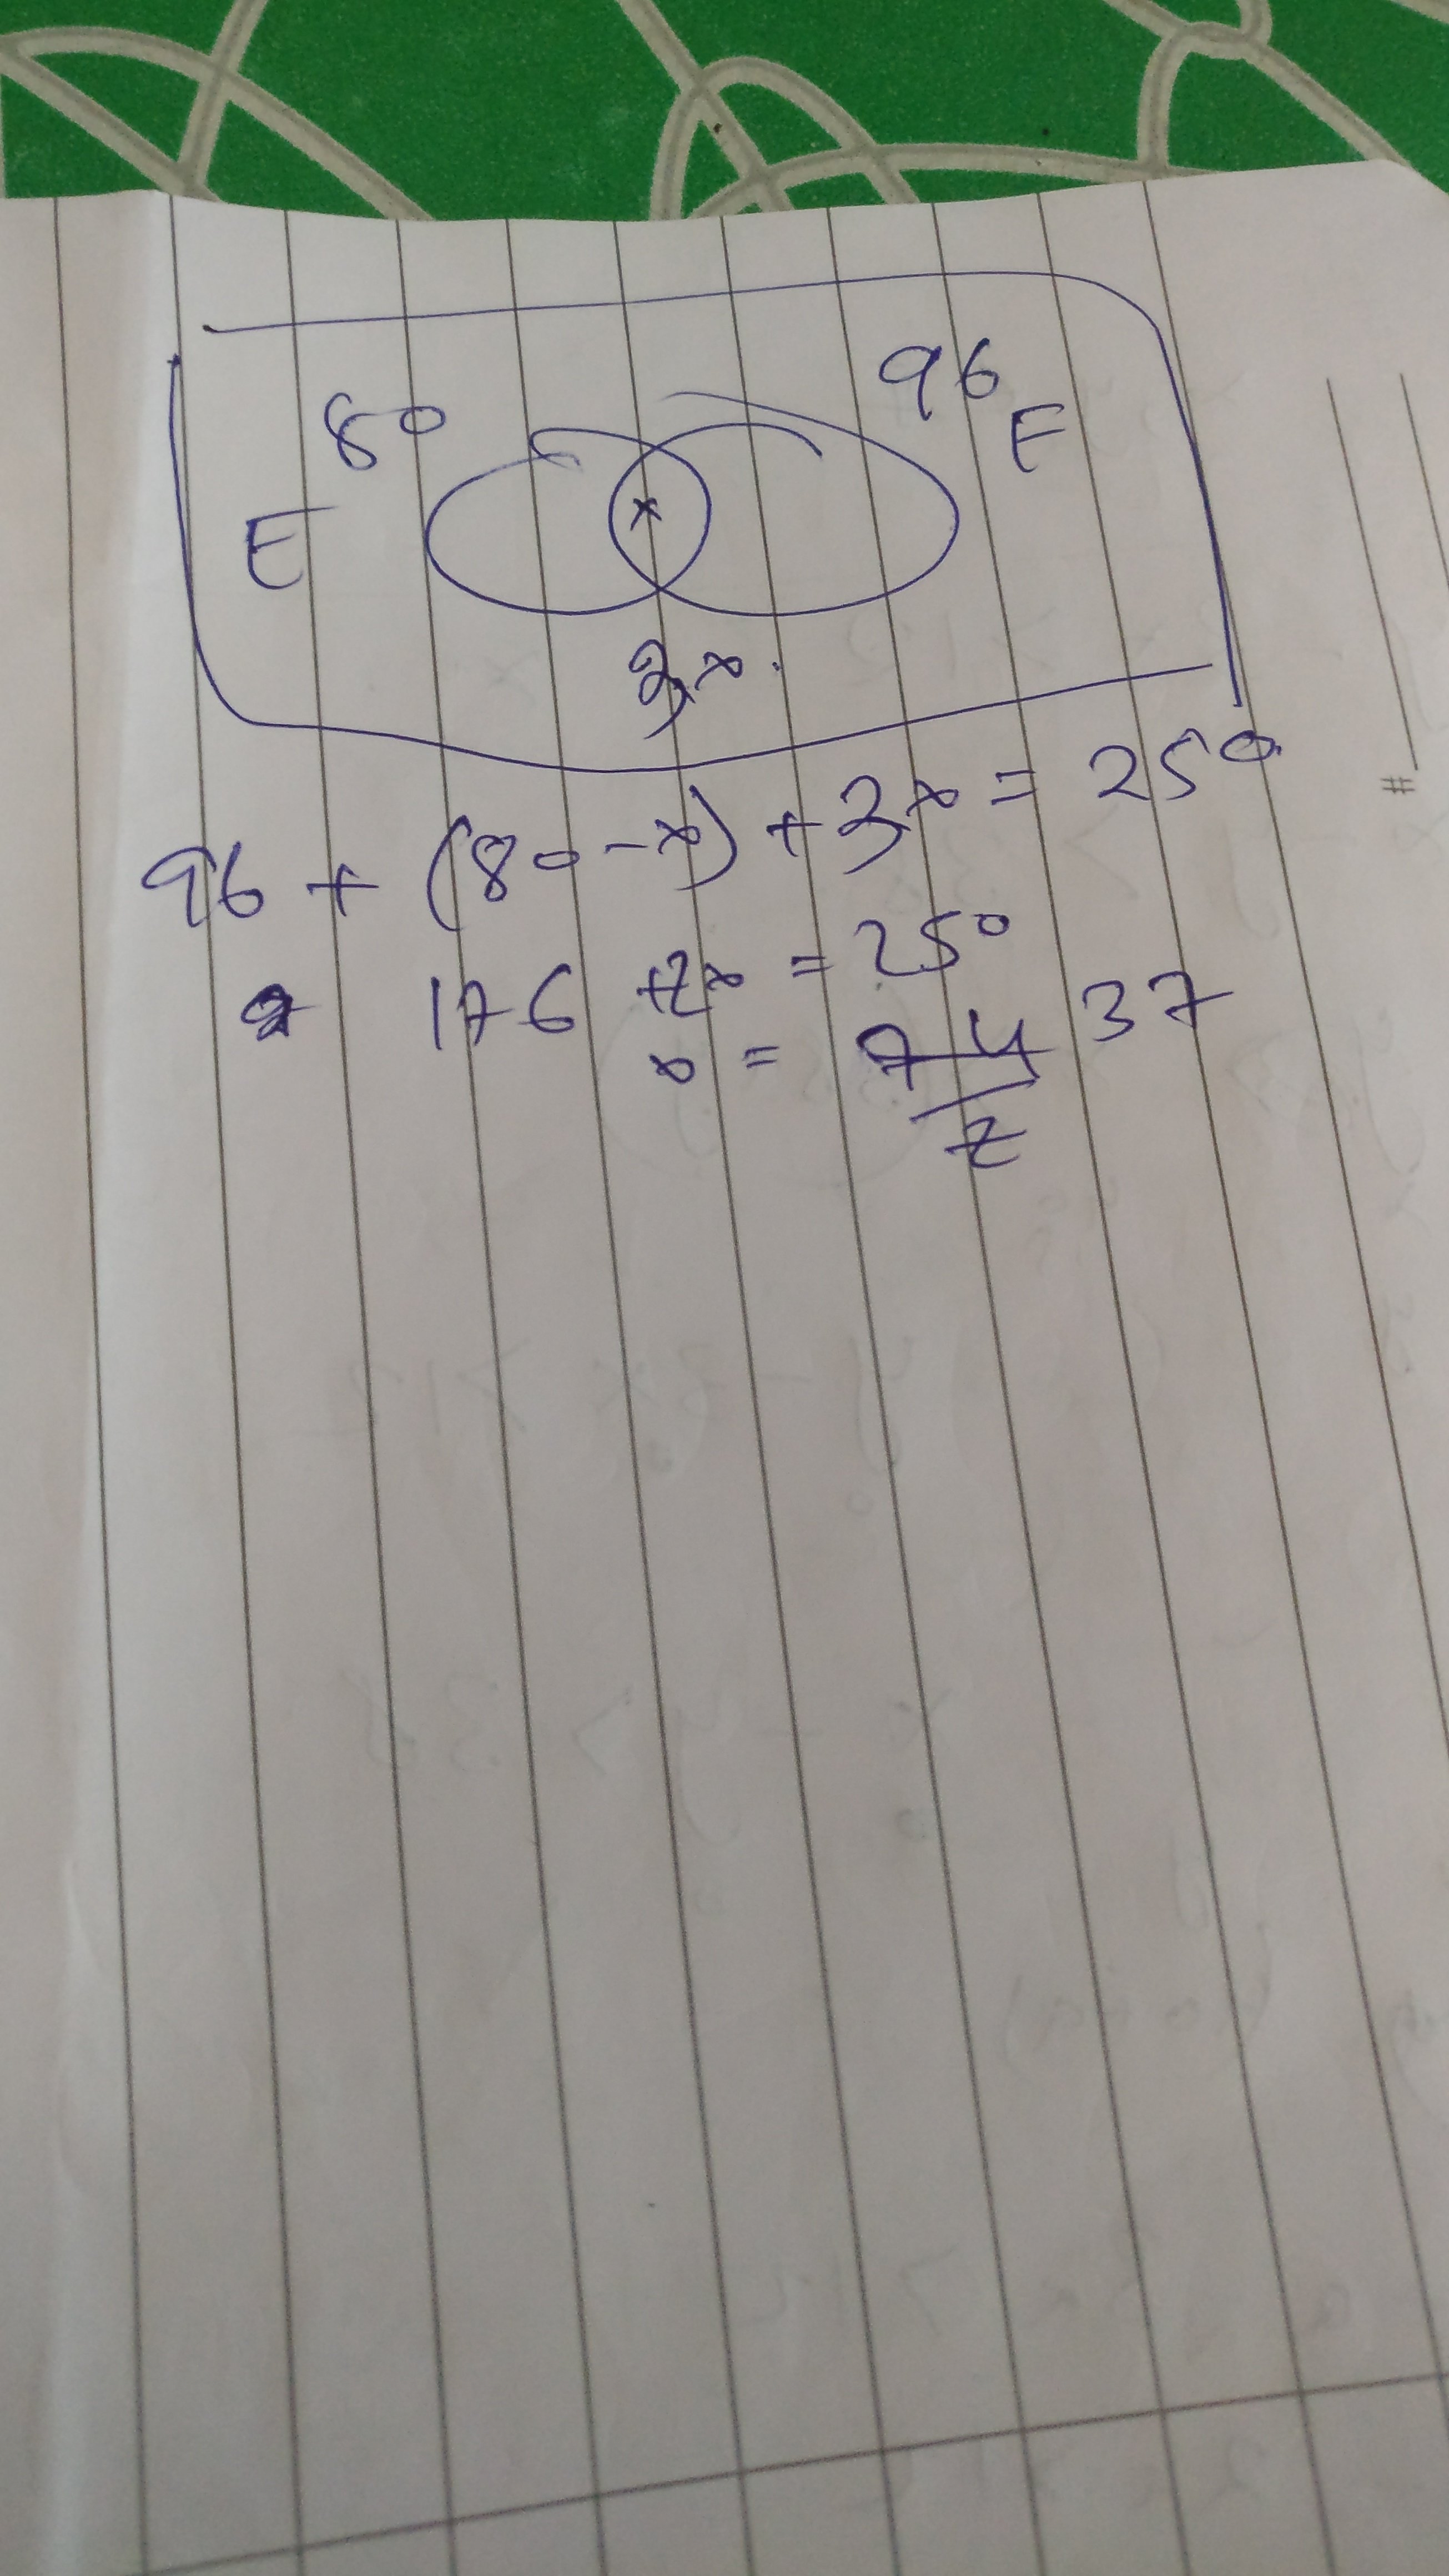 80
96
E
F
x
3x
96 + (80 - x) + 3x = 250
176 + 2x = 250
x = 74/2 37